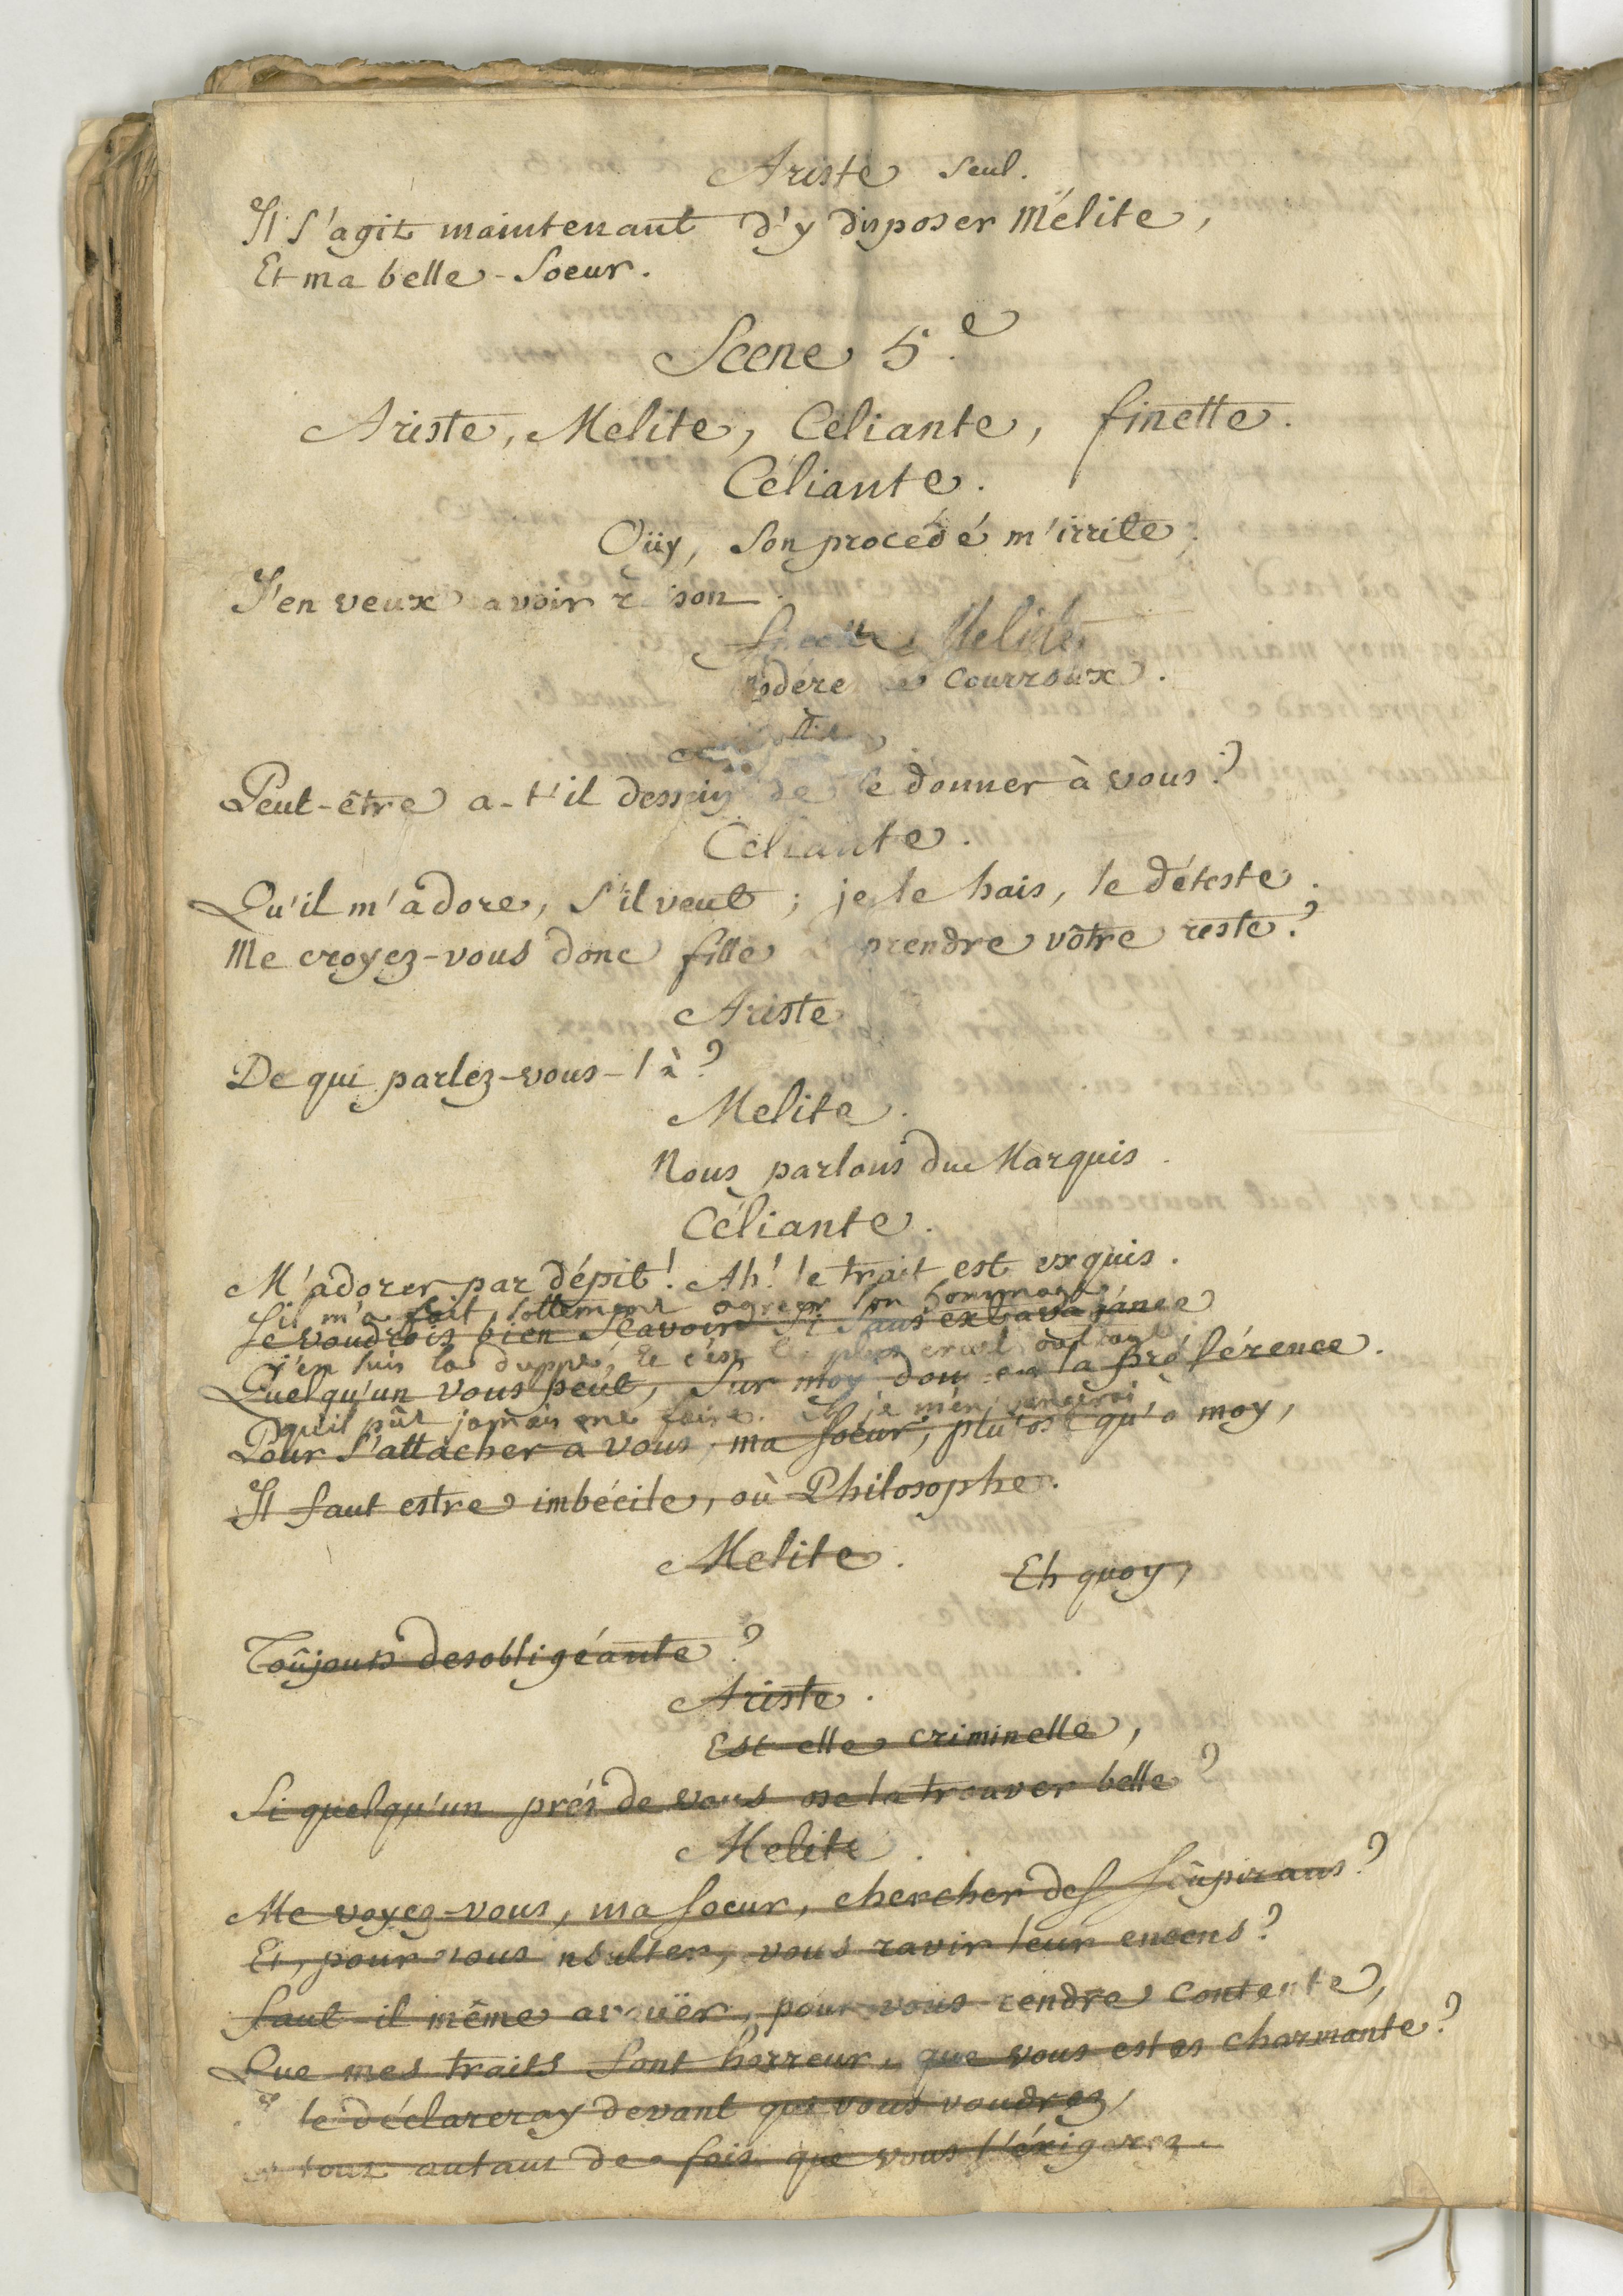 Ariste seul.
Il s'agit maintenant d'y disposer Mélite,
Et ma belle-soeur.
Scene 5.e
Ariste, Melite, Céliante, finette.
Céliante.
Oüy, son procédé m'irrite.
J'en veux avoir r son
Melite
dére courroux.
Peut-être a-t'il dessein de le donner à vous?
Céliante.
Qu'il m'adore, s'il veut; je le hais, le déteste.
Me croyez-vous donc fille prendre vôtre reste?
Ariste
De qui parlez-vous-là?
Melite.
Nous parlons du Marquis.
Céliante.
M'adorer par dépit! Ah! le trait est exquis.
S'il m'a fait sottement agréer son hommage
Je voudrois bien sçavoir si sans extravagance
j'en suis la duppe, et c'est le plus cruel outrage
Quelqu'un vous peut, sur moy donner la préférence.
qu'il pût jamais me faire. Et je m'en vangerai
Pour s'attacher a vous, ma soeur, plutost qu'a moy,
Il faut estre imbécile, où Philosophe.
Melite.
Eh quoy,
Toûjours desobligéante?
Ariste.
Est-elle criminelle,
Si quelqu'un prés de vous ose la trouver belle?
Melite.
Me voyez-vous, ma soeur, chercher des soûpirans?
Et, pour vous insulter, vous ravir leur encens?
faut-il même avoüer, pour vous rendre contente,
Que mes traits font horreur, que vous estes charmante?
le déclareray devant qui vous voudrez,
tout autant de fois que vous l'éxigerez.